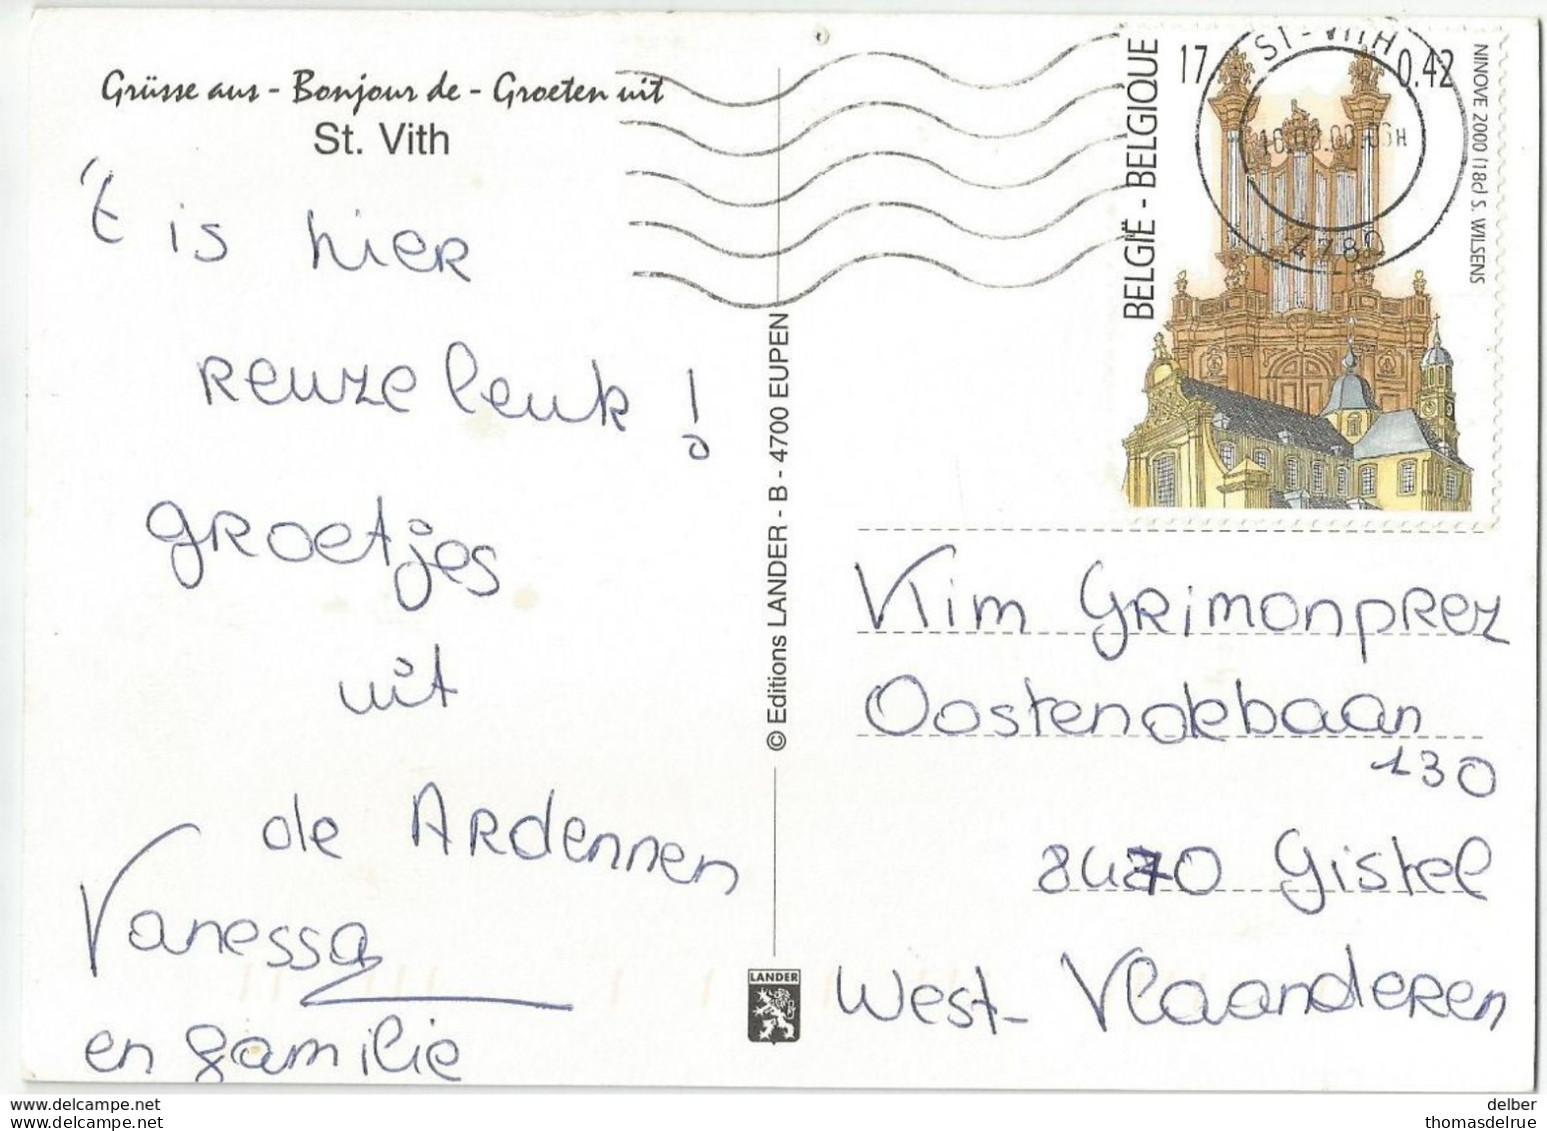 Grüsse aus - Bonjour de - Groeten uit
St. Vith
't is hier
reuzeleuk!
groetjes
uit
de Ardennen
Vanessa
en familie
© Editions LANDER - B - 4700 EUPEN
LANDER
BELGIË - BELGIQUE
17
0.42
NINOVE 2000 (18c) S. WILSENS
ST-VITH
4780
Kim Grimonprez
Oostendebaan
130
8470 Gistel
West-Vlaanderen
delber
www.delcampe.net
thomasdelrue
www.delcampe.net